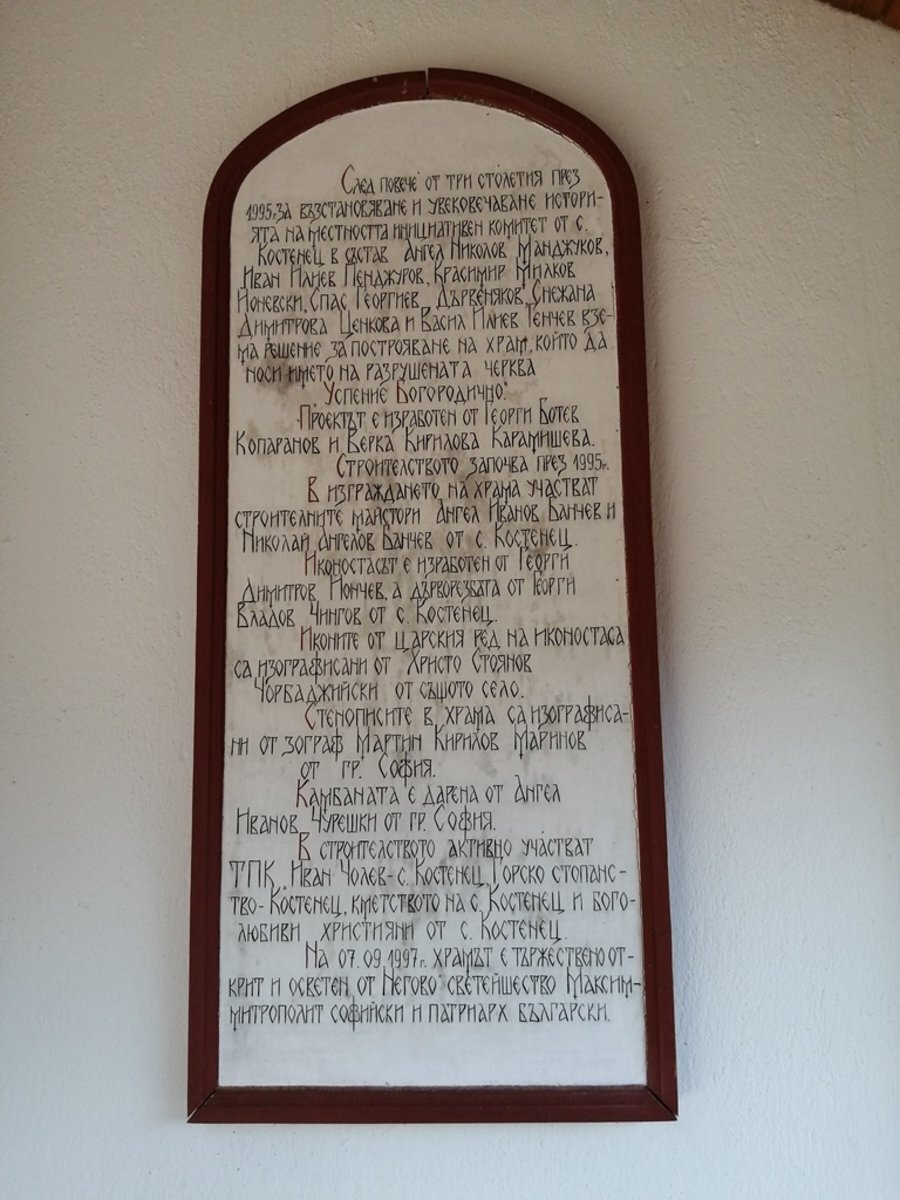 След повече от три столетия през
1995г. за възстановяване и увековечаване истори-
ята на местността инициативен комитет от с.
Костенец в състав Ангел Николов Манджуков,
Иван Илиев Пенджуров, Красимир Милков
Йоневски, Спас Георгиев Дървеняков, Снежана
Димитрова Ценкова и Васил Илиев Генчев взе-
ма решение за построяване на храм, който да
носи името на разрушената черква
"Успение Богородично".
Проектът е изработен от Георги Ботев
Копаранов и Верка Кирилова Карамишева.
Строителството започва през 1995г.
В изграждането на храма участват
строителните майстори Ангел Иванов Банчев и
Николай Ангелов Банчев от с. Костенец.
Иконостасът е изработен от Георги
Димитров Йончев, а дърворезбата от Георги
Владов Чингов от с. Костенец.
Иконите от царския ред на иконостаса
са изографисани от Христо Стоянов
Чорбаджийски от същото село.
Стенописите в храма са изографиса-
ни от зограф Мартин Кирилов Маринов
от гр. София.
Камбаната е дарена от Ангел
Иванов Чурешки от гр. София.
В строителството активно участват
ТПК "Иван Чолев"- с. Костенец, Горско стопанс-
тво- Костенец, кметството на с. Костенец и бого-
любиви християни от с. Костенец.
На 07.09.1997г. храмът е тържествено от-
крит и осветен от Негово светейшество Максим-
митрополит софийски и патриарх български.